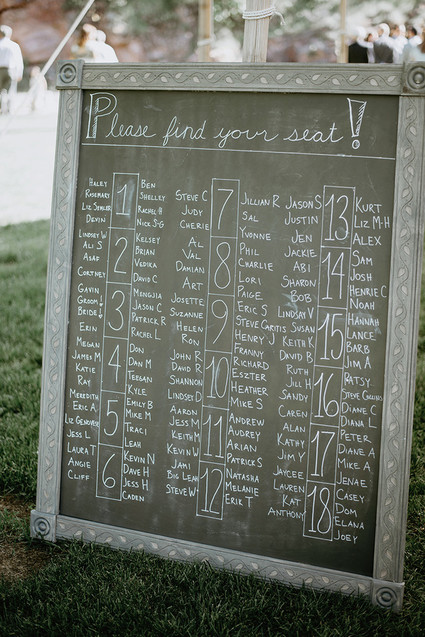 Please find your seat!
Haley
Rosemary
Liz Sehler
Devin
Lindsey W
Ali S
Asad
Cortney
Gavin
Groom ↓
Bride ↓
Erin
Megan
James M
Katie
Ray
Meredith
Eric A
Liz Genover
Jess L
Laura T
Angie
Cliff
1
2
3
4
5
6
Ben
Shelley
Rachel H
Nick S-G
Kelsey
Brian
Vedika
David C
Mengjia
Jason C
Patrick R
Rachel L
Don
Dan M
Teegan
Kyle
Emily B
Mike M
Traci
Leah
Kevin N
Dave H
Jess H
Caden
Steve C
Judy
Cherie
Al
Val
Damian
Art
Josette
Suzanne
Helen
Ron
John R
David D
Shannon
Lindsey D
Aaron
Jess M
Keith M
Kevin W
Jami
Big Len
Steve W
7
8
9
10
11
12
Jillian R
Sal
Yvonne
Phil
Charlie
Lori
Paige
Eric S
Steve Garitis
Henry
Franny
Richard
Eszter
Heather
Mike S
Andrew
Audrey
Arian
Patrick S
Natasha
Melanie
Erik T
Jason S
Justin
Jen
Jackie
Abi
Sharon
Bob
Lindsay V
Susan
Keith K
David B
Ruth
Jill H
Sandy
Caren
Alan
Kathy
Jim Y
Jaycee
Lauren
Kat
Anthony
13
14
15
16
17
18
Kurt
Liz M-H
Alex
Sam
Josh
Henric C
Noah
Hannah
Lance
Barb
Jim A
Patsy
Steve Collins
Diane C
Diana L
Peter
Diane A
Mike A
Jenae
Casey
Dom
Elana
Joey